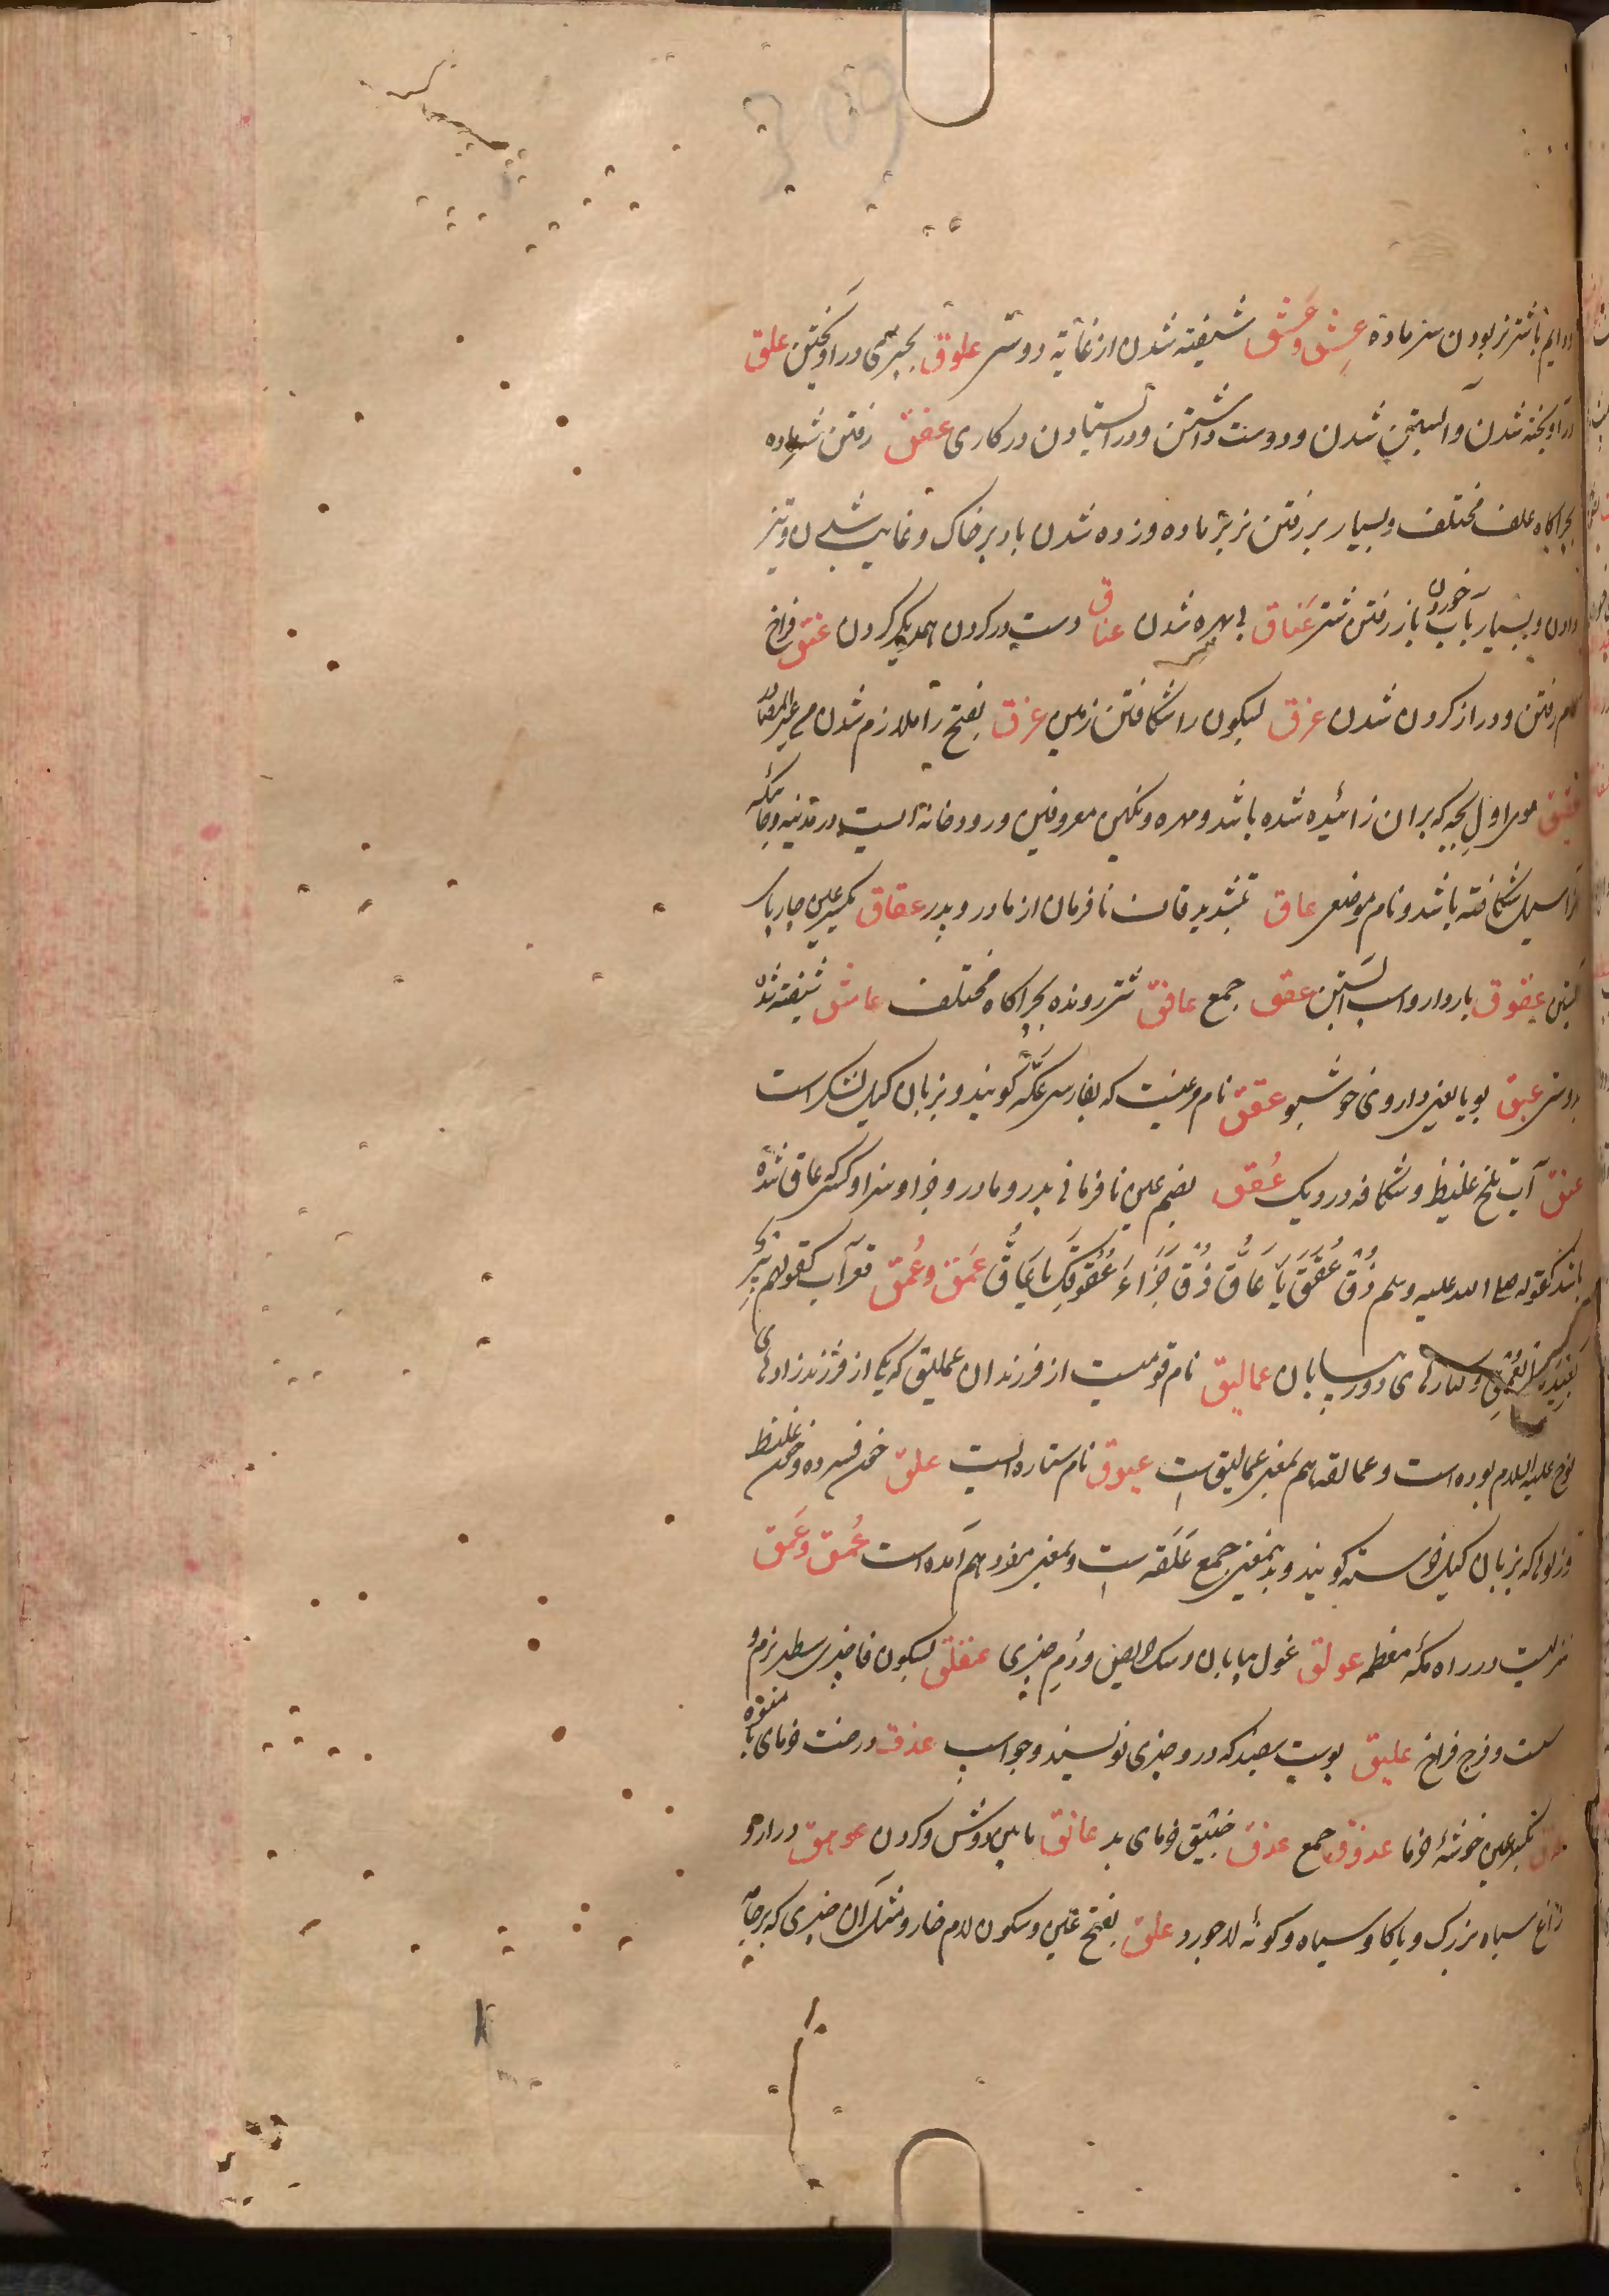 ودایم باشتر نر بودن شتر مادہ عِشق وعَشق شیفته شدن از غایة دوستی علوق بچیزی در آویختن علق
در آویخته شدن و آبستن شدن ودوست داشتن ودر ایستادن در کاری عفق رفتن شتر ماده
بچراگاه علف مختلف وبسیار بر رفتن نر بر ماده وزده شدن باد بر خاک وغایب شدن وتیز
دادن وبسیار بآب خوردن باز رفتن شتر عَناق بی بهره شدن عناق دست در کردن همدیگر کردن عنق فراخ
کام رفتن ودراز کردن شدن عزق بسکون را شکافتن زمین عزق بفتح را ملازم شدن من غیر المصادر
عقیق موی اول بچه که بران زائیده شده باشد ومهره ونگین معروفین ورودخانه ایست در مدینه وجائیکه
آنرا سیل شکافته باشد ونام موضعی عاق بتشدید قاف نافرمان از مادر وپدر عقاق بکسر عین چارپای
آبستن عقوق باردار واسب آبستن عقق جمع عافق شتر رونده بچراگاه مختلف عاشق شیفته شده
دوستی عبق بویا یعنی داروی خوشبو عقعق نام مرغیست که بفارسی عکّه گویند وبزبان گیل لشکر است
عنق آب تلخ غلیظ وشکافه در ودیک عُقق بضم عین نافرمانی پدر ومادر وجزا وسزا وکسی عاق شده
باشد کقوله صلی الله علیه وسلم ذُقْ عُقَقَ یَا عَاقُّ ذُقْ جَزَاءَ عُقُوقِکَ یَا عَاقُّ عَمق وعُمق قعر آب کقولهم بِئر
بَعِیدَة العُمق وکنارهای دور بیابان عمالیق نام قومیست از فرزندان عملیق که یکی از فرزندزادهای
نوح علیه السلام بوده است وعمالقه هم بمعنی عمالیق است عیوق نام ستاره ایست علق خون فسرده وخون غلیظ
وزلو که بزبان گیل خراسته گویند وبدینمعنی جمع عَلَقَه است وبمعنی مفرد هم آمده است عُمق وعَمق
منزلیست در راه مکّه معظمه عولق غول بیابان وسگ حریص ودُم چیزی عفلق بسکون فا چیزی سطبر نرم و
سست وفرج فراخ علیق پوست سفید که در و چیزی نویسند وجو اسب عذق درخت خرمای با میوه
عذق بکسر عین خوشهٔ خرما عذوق جمع عذق خبیق خرمای بد عاتق مابین دوش وگردن عوهق دراز و
زاغ سیاه بزرگ ویا گاو سیاه وگونهٔ لاجورد علق بفتح عین وسکون لام خار ومثل آن چیزی که بر جامه